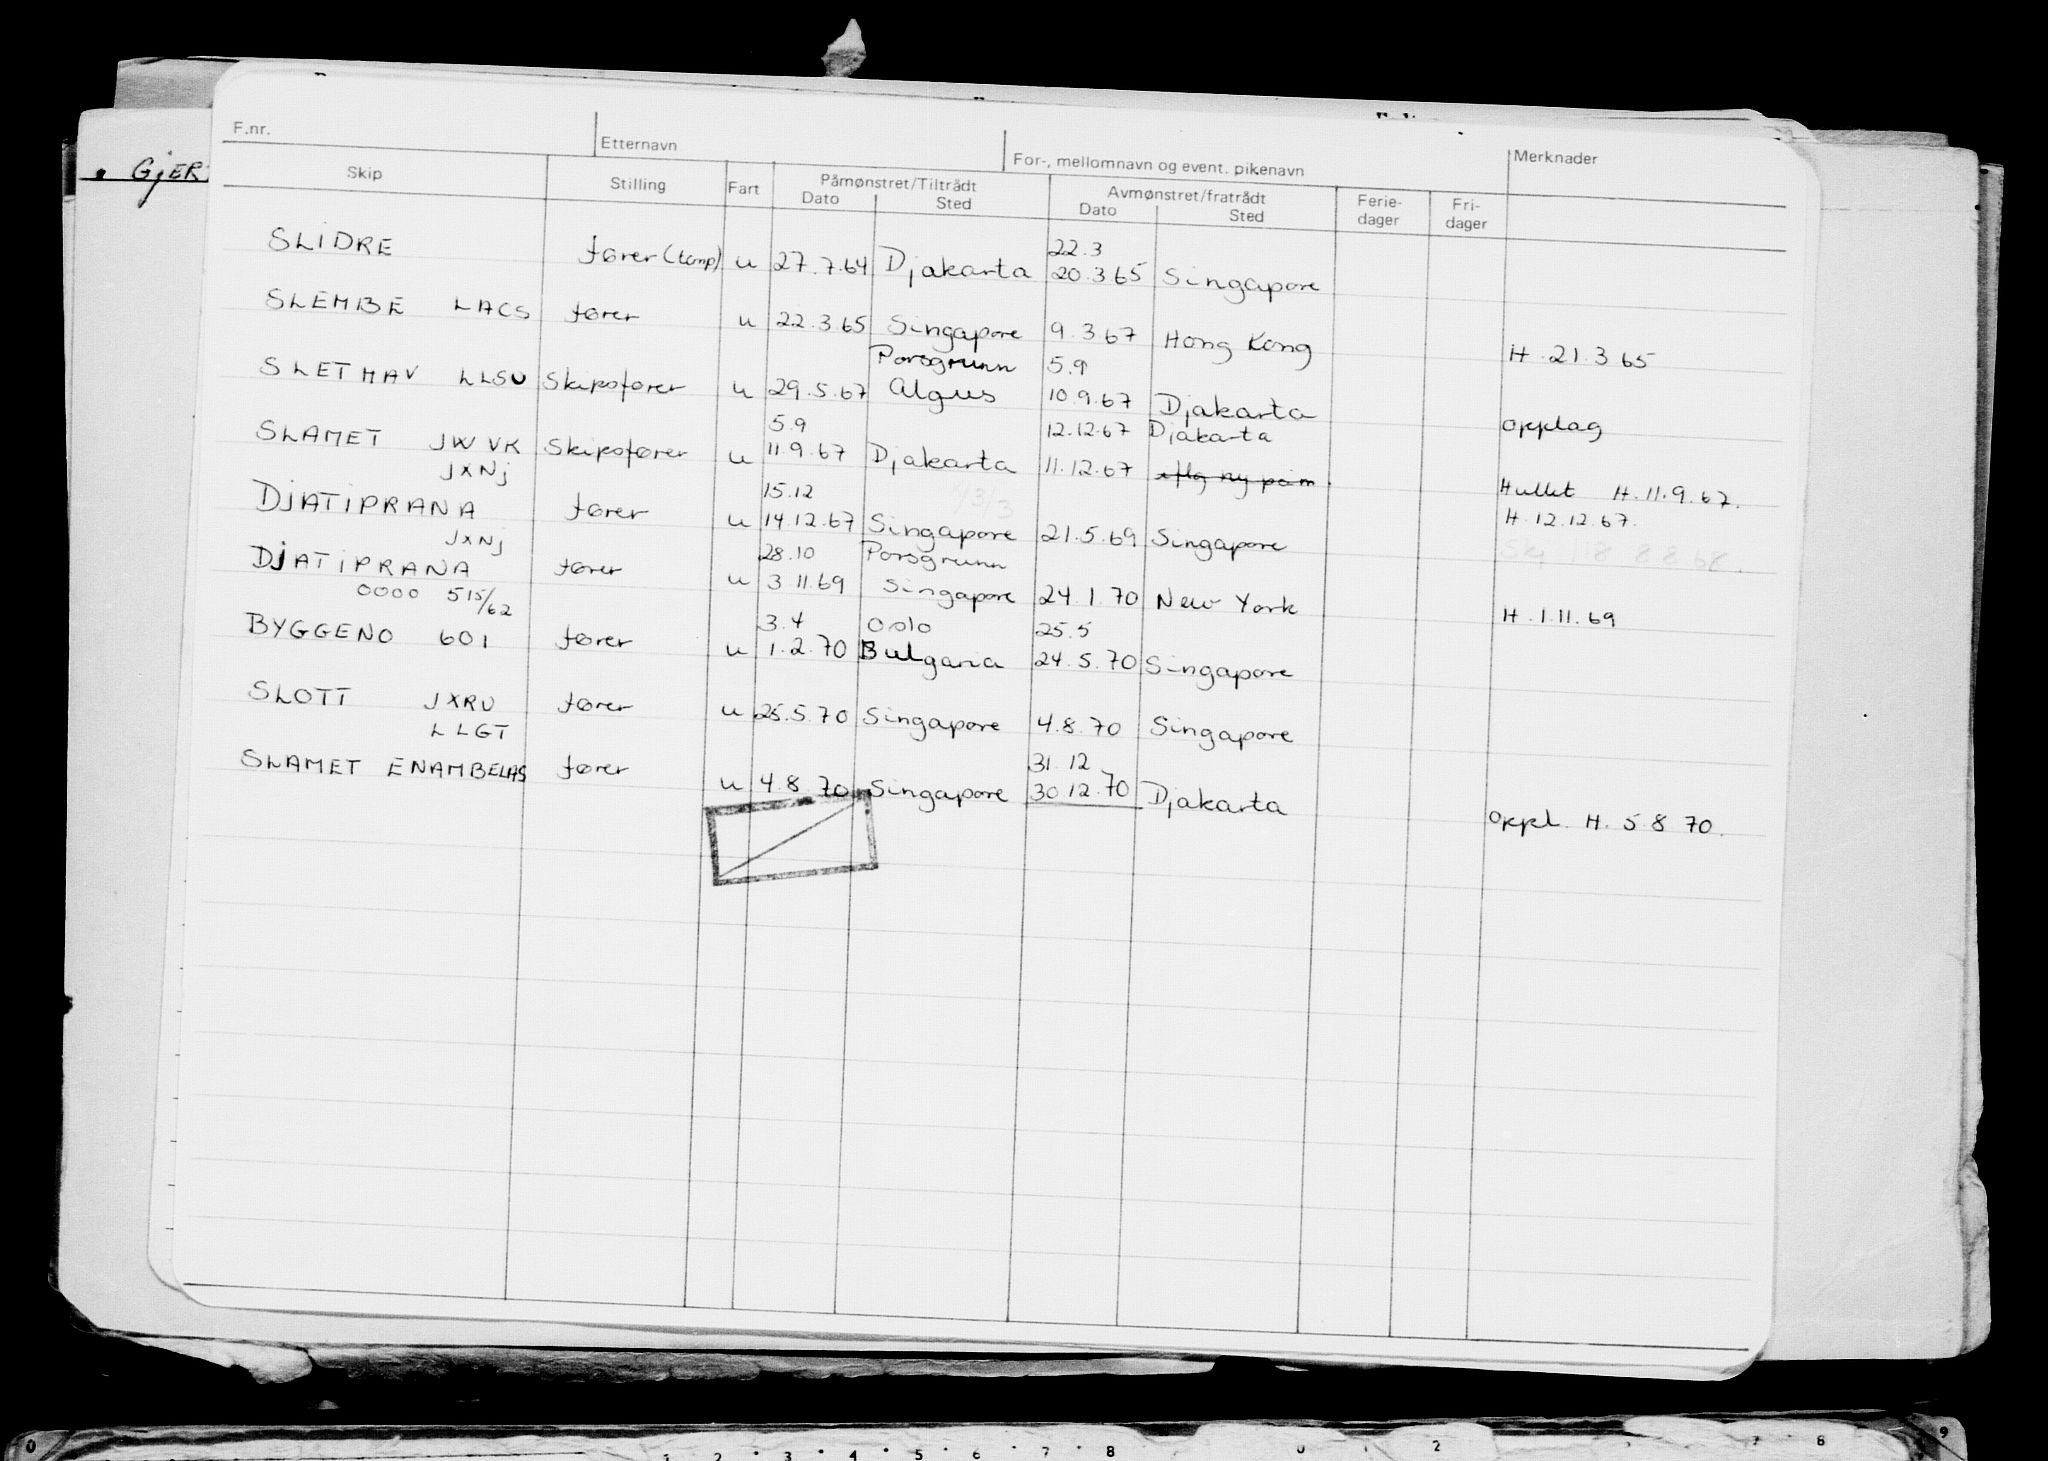 F.nr.
Etternavn
For-, mellomnavn og event. pikenavn
Merknader
Skip
Stilling
Fart
Påmønstret/Tiltrådt
Dato
Sted
Avmønstret/fratrådt
Dato
Sted
Ferie-
dager
Fri-
dager
GjER
22.3
SLIDRE fører (temp) u 27.7.64 Djakarta 20.3.65 Singapore
SLEMBE LACS fører u 22.3.65 Singapore 9.3.67 Hong Kong H. 21.3 65
Porsgrunn 5.9
SLETHAV LLSU Skipsfører u 29.5.67 10.9.67 Djakarta opplag
5.9 12.12.67 Djakarta
SLAMET JWVK Skipsfører u 11.9.67 Djakarta 11.12.67 Hullet H. 11.9.67.
JXNj 15.12 H. 12.12.67.
DjATIPRANA fører u 14.12.67 Singapore 21.5.69 Singapore
JXNj 28.10 Porsgrunn
DjATiPRANA fører u 3 11.69 Singapore 24.1.70 New York H. 1.11.69
0000 515/62 3.4 Oslo 25.5
BYGGENO 601 fører u 1.2.70 Bulgaria 24.5.70 Singapore
SLOTT JXRU fører u 25.5.70 Singapore 4.8.70 Singapore
LLGT 31.12
SLAMET ENAMBELAS fører u 4.8.70 Singapore 30.12.70 Djakarta oppl. H. 5.8 70.
0 1 2 3 4 5 6 7 8 0 1 2 7 8 9